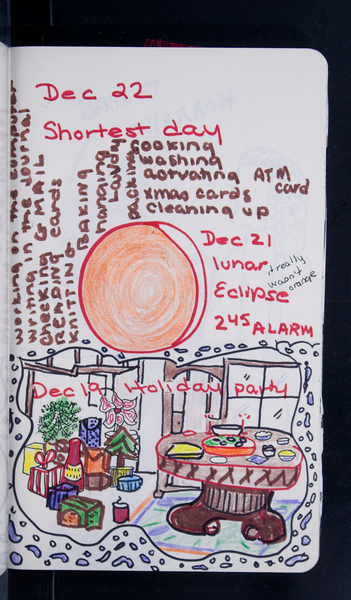 Dec 22
Shortest day
working on the computer
writing in the Journal
checking G MAIL
cards
KNITTING
BAKING
hanging
packing
cooking
washing
activating ATM card
xmas cards
cleaning up
Dec 21
lunar
Eclipse
it really
wasn't
orange
2 45 ALARM
Dec 19 Holiday party